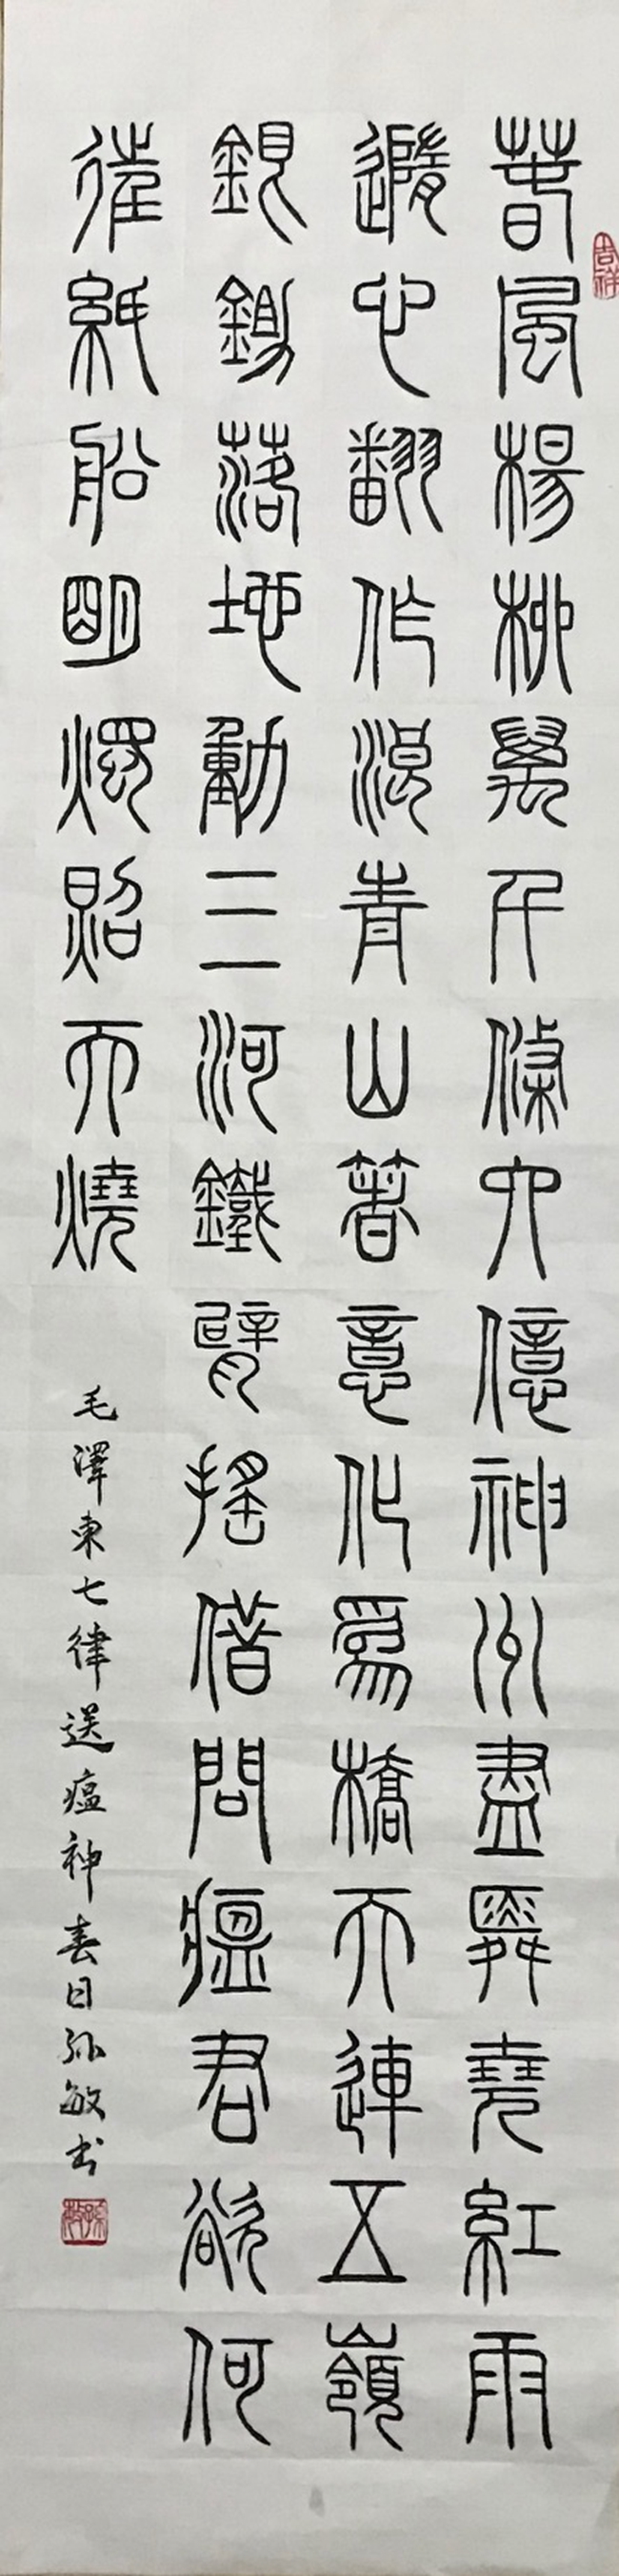 吉祥
春風楊柳萬千條六億神州盡舜堯紅雨
隨心翻作浪青山著意化爲橋天連五嶺
銀鋤落地動三河鐵臂搖借問瘟君欲何
往紙船明燭照天燒
毛澤東七律送瘟神春日孫敏书
孫敏